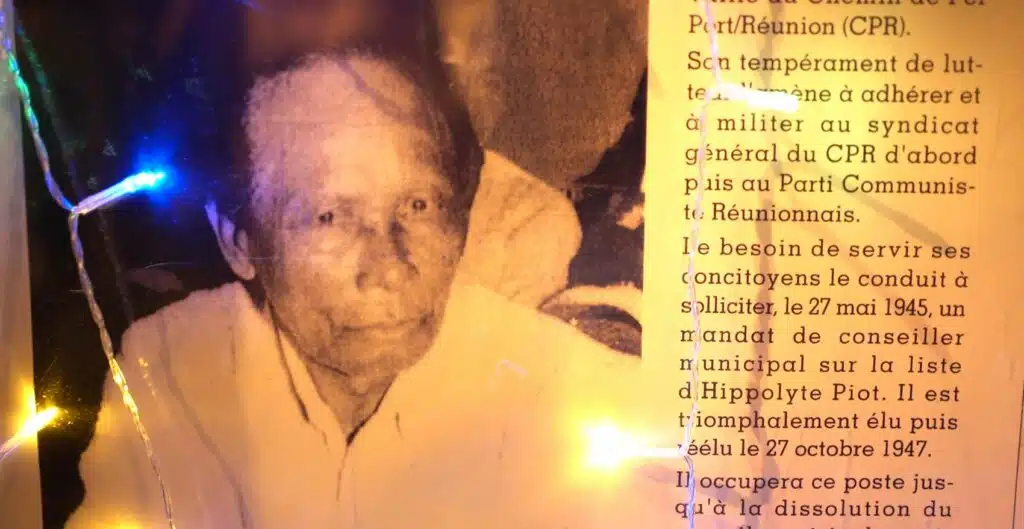 du Chemin de Fer
Port/Réunion (CPR).
Son tempérament de lut-
teur l'amène à adhérer et
à militer au syndicat
général du CPR d'abord
puis au Parti Communis-
te Réunionnais.
Le besoin de servir ses
concitoyens le conduit à
solliciter, le 27 mai 1945, un
mandat de conseiller
municipal sur la liste
d'Hippolyte Piot. Il est
triomphalement élu puis
réélu le 27 octobre 1947.
Il occupera ce poste jus-
qu'à la dissolution du